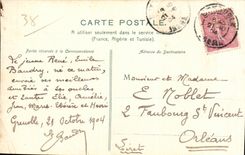 38
CARTE POSTALE
A utiliser seulement dans le service
(France, Algérie et Tunisie)
Partie réservée à la Correspondance
Adresse du Destinataire
Le jeune René, Emile
Baudry, né ce matin,
envoie ses meilleures
amitiés à ses oncles
et tantes Elie, Amélie,
Jean, Marie
Grenelle, 21 octobre 1904
Monsieur et Madame
E Noblet
2 Faubourg St Vincent
Orléans
Loiret